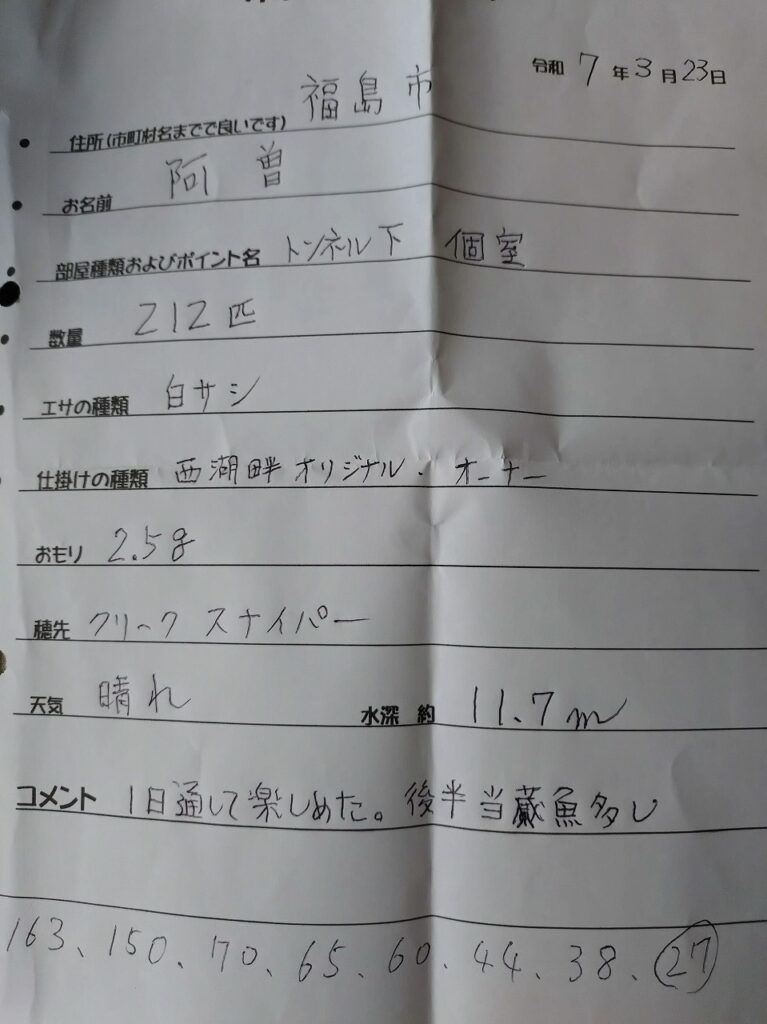 令和 7 年 3 月 23 日
住所(市町村名までで良いです) 福島市
お名前 阿曽
部屋種類およびポイント名 トンネル下 個室
数量 212匹
エサの種類 白サシ
仕掛けの種類 西湖畔オリジナル・オーナー
おもり 2.5g
穂先 クリーク スナイパー
天気 晴れ 水深 約 11.7m
コメント 1日通して楽しめた。後半当歳魚多し
163、150、70、65、60、44、38、27